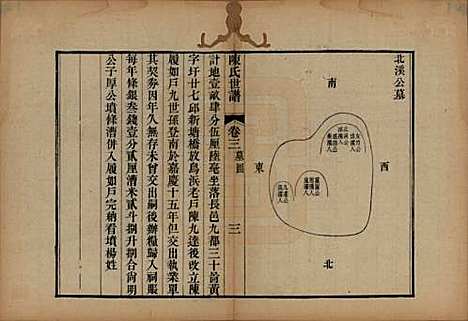 北溪公墓
南
西
東
北
陳氏世譜
卷三
墓圖
三
計地壹畝肆分伍厘陸毫坐落長邑九都三十啇黃
字圩廿七邱新塘橋放鳥浜老戶陳九達後改立陳
履如戶九世孫登南於嘉慶十五年但交出執業單
其契券因年久無存曾交出嗣後辦糧歸入祠賬
每年條銀叁錢壹分貳厘漕米貳斗捌升捌合與明
公子厚公墳條漕併入履如戶完納看墳楊姓